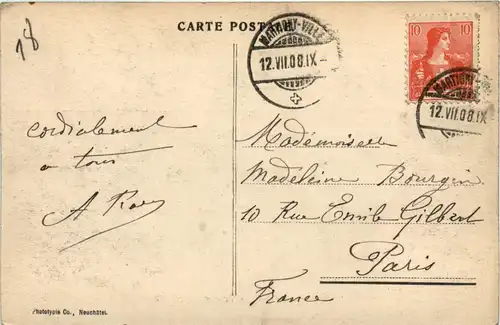 18
CARTE POSTALE
MARTIGNY-VILLE
12.VII.08.IX
10 10
MARTIGNY-VILLE
12.VII.08.IX
cordialement
a tous
A
Mademoiselle
Madeleine Bourgin
10 Rue Emile Gilbert
Paris
France
Phototypie Co., Neuchâtel.